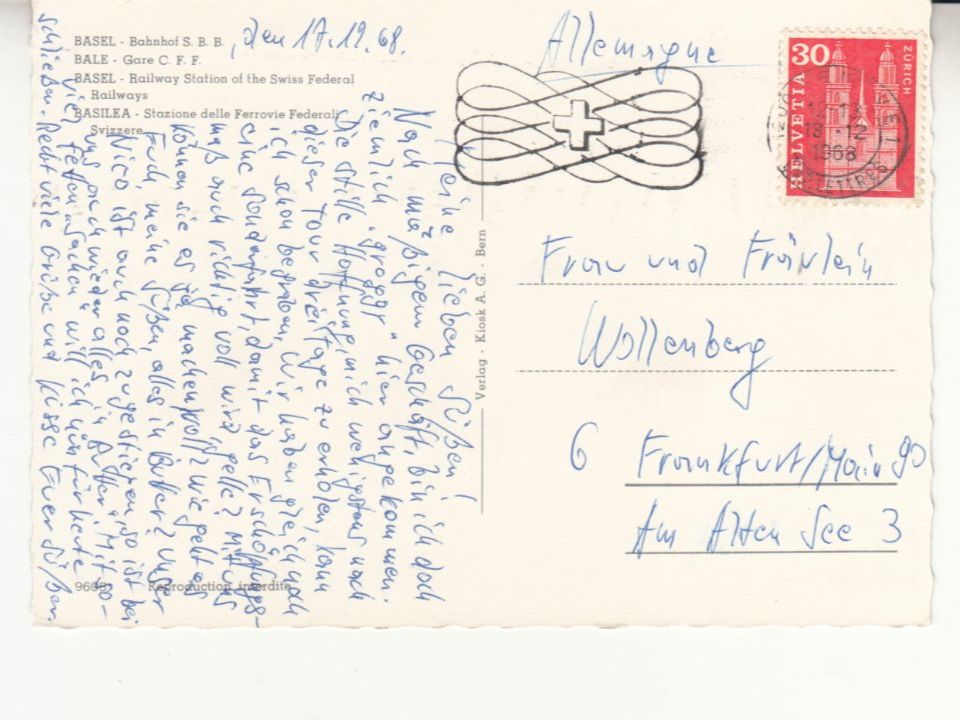 BASEL - Bahnhof S. B. B.
, den 17.12.68.
BALE - Gare C. F. F.
BASEL - Railway Station of the Swiss Federal
Railways
BASILEA - Stazione delle Ferrovie Federali
Svizzere
Meine lieben Süßen!
Nach mäßigem Geschäft, bin ich doch
ziemlich "groggy" hier angekommen.
Die stille Hoffnung, mich wenigstens nach
dieser Tour drei Tage zu erholen, kann
ich schon begraben. Wir haben gleich noch
eine Sonderfahrt, damit das Erschöpfungs-
maß auch richtig voll wird, gelle? Mit uns
können sie es ja machen, wie geht es
Euch, meine Süßen, alles in Butter? Unser
Nico ist auch noch zugestiegen, so ist bei
uns auch wieder alles "in Butter". Mit so-
viel "fetten Sachen" will ich nun für heute
schließen. Recht viele Grüße und Küsse Euer Süßer.
9605
Reproduction interdite
Verlag - Kiosk A. G. - Bern
Allemagne
30
HELVETIA
ZÜRICH
18.-12
1968
LETTRES
Frau und Fräulein
Wollenberg
6 Frankfurt/Main 90
Am Alten See 3